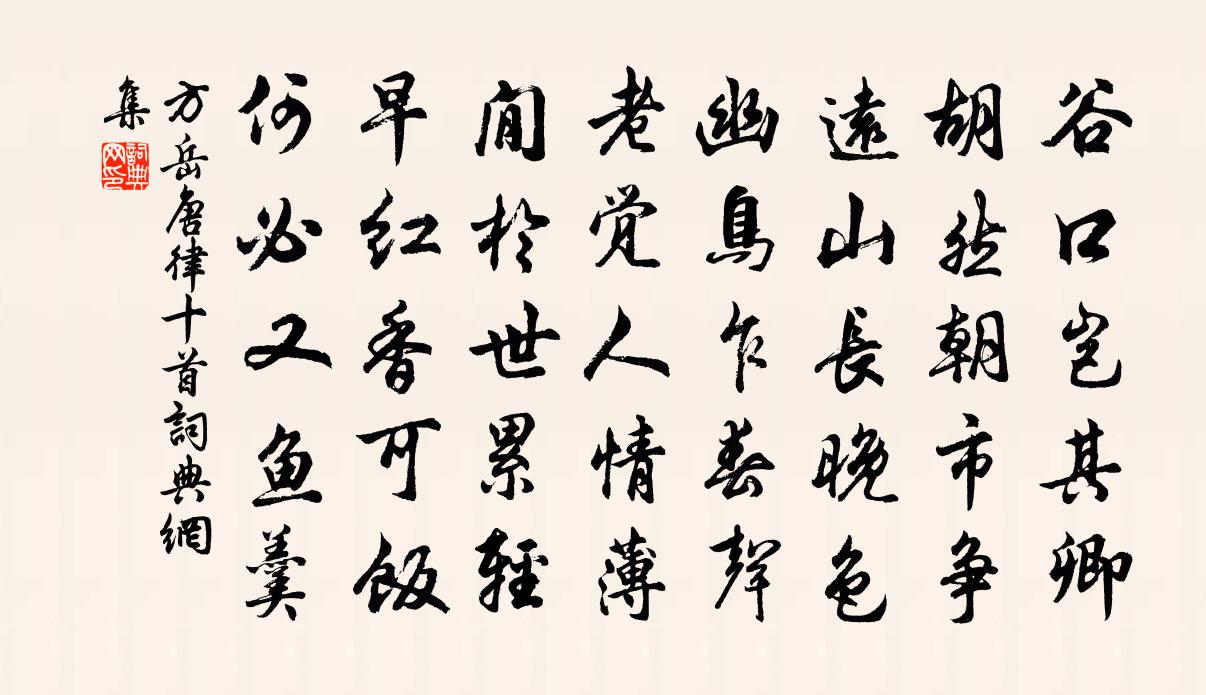 谷口岂其卿
胡然朝市争
遠山長晚色
幽鳥乍春聲
老觉人情薄
閒於世累輕
早红香可飯
何必又魚羹
方岳唐律十首詞典網
集
詞典
网印